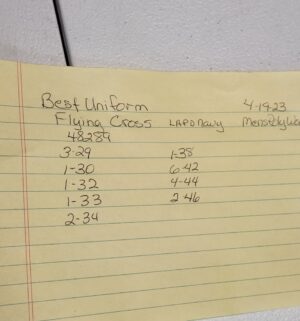 Best Uniform 4-19-23
Flying Cross LAPD Navy
48289
3-29 1-38
1-30 6-42
1-32 4-44
1-33 2-46
2-34